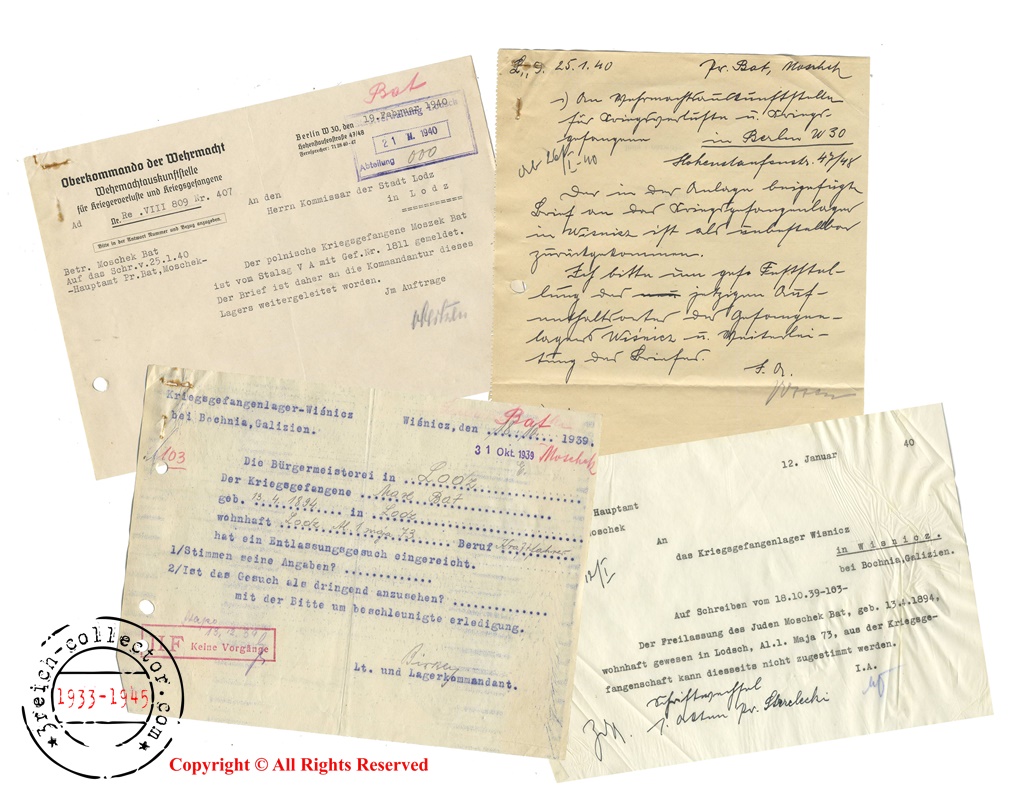 Bat
Oberkommando der Wehrmacht
Wehrmachtauskunftstelle
für Kriegerverluste und Kriegsgefangene
Ad
Dr.Re .VIII 809 Nr. 407
Bitte in der Antwort Nummer und Bezug angegeben.
Berlin W 30, den 19. Februar 1940
Hohenstaufenstraße 47/48
Fernsprecher:
21. 1940
Abteilung 000
An den
Herrn Kommissar der Stadt Lodz
in Lodz
==========
Betr. Moschek Bat
Auf das Schr.v.25.1.40
-Hauptamt Pr.Bat,Moschek-
Der polnische Kriegsgefangene Moszek Bat
ist vom Stalag V A mit Gef.Nr. 1811 gemeldet.
Der Brief ist daher an die Kommandantur dieses
Lagers weitergeleitet worden.
Jm Auftrage
25.1.40
Pr. Bat, Moschek
1) An Wehrmachtauskunftstelle
für Kriegsverluste u. Kriegs-
gefangenen
in Berlin W 30
Hohenstaufenstr. 47/48
Der in der Anlage beigefügte
Brief an das Kriegsgefangenlager
in Wisnicz ist als unbestellbar
zurückgekommen.
Ich bitte um gefl. Feststel-
lung des jetzigen Auf-
enthaltsortes des Gefangen-
lagers Wiśnicz u. Weiterlei-
tung des Briefes.
I. A.
Kriegsgefangenlager-Wiśnicz
bei Bochnia,Galizien.
Bat
Wiśnicz,den ............ 1939.
31 Okt. 1939
Moschek
103
Die Bürgermeisterei in ..Lodz..............
Der Kriegsgefangene ..... Bat..............
geb. 13.4.1894.... in .Lodz................
wohnhaft Lodz M. 1 maja 73.. Beruf Kraftfahrer
hat ein Entlassungsgesuch eingereicht.
1/Stimmen seine Angaben? .............
2/Ist das Gesuch als dringend anzusehen? ..............
mit der Bitte um beschleunigte erledigung.
Keine Vorgänge
Lt. und Lagerkommandant.
12. Januar 40
Hauptamt
Moschek
An
das Kriegsgefangenlager Wisnicz
in Wisnicz.
bei Bochnia,Galizien.
12/I
Auf Schreiben vom 18.10.39-103-
Der Freilassung des Juden Moschek Bat, geb. 13.4.1894,
wohnhaft gewesen in Lodsch, Al.1. Maja 73, aus der Kriegsge-
fangenschaft kann diesseits nicht zugestimmt werden.
I.A.
Schriftwechsel
3reich-collector.com
1933-1945
Copyright © All Rights Reserved